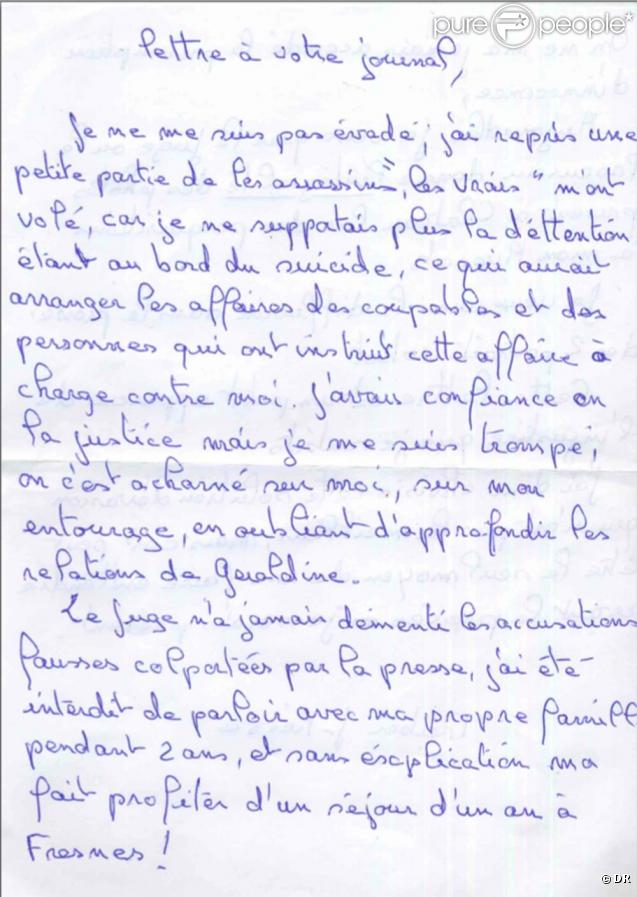 pure people
lettre à votre journal,
Je ne me suis pas évadé, j'ai repris une
petite partie de les assassins, "les vrais" m'ont
volé, car je ne supportais plus la d'éttention
étant au bord du suicide, ce qui aurait
arranger les affaires des coupables et des
personnes qui ont instruit cette affaire à
charge contre moi, j'avais confiance en
la justice mais je me suis trompe,
on c'est acharné sur moi, sur mon
entourage, en oubliant d'approfondir les
relations de Geraldine.
Le juge n'a jamais dementi les accusations
fausses colportées par la presse, j'ai été
interdit de parloir avec ma propre famille
pendant 2 ans, et sans éxplication ma
fait profiter d'un séjour d'un an à
Fresnes !
© DR